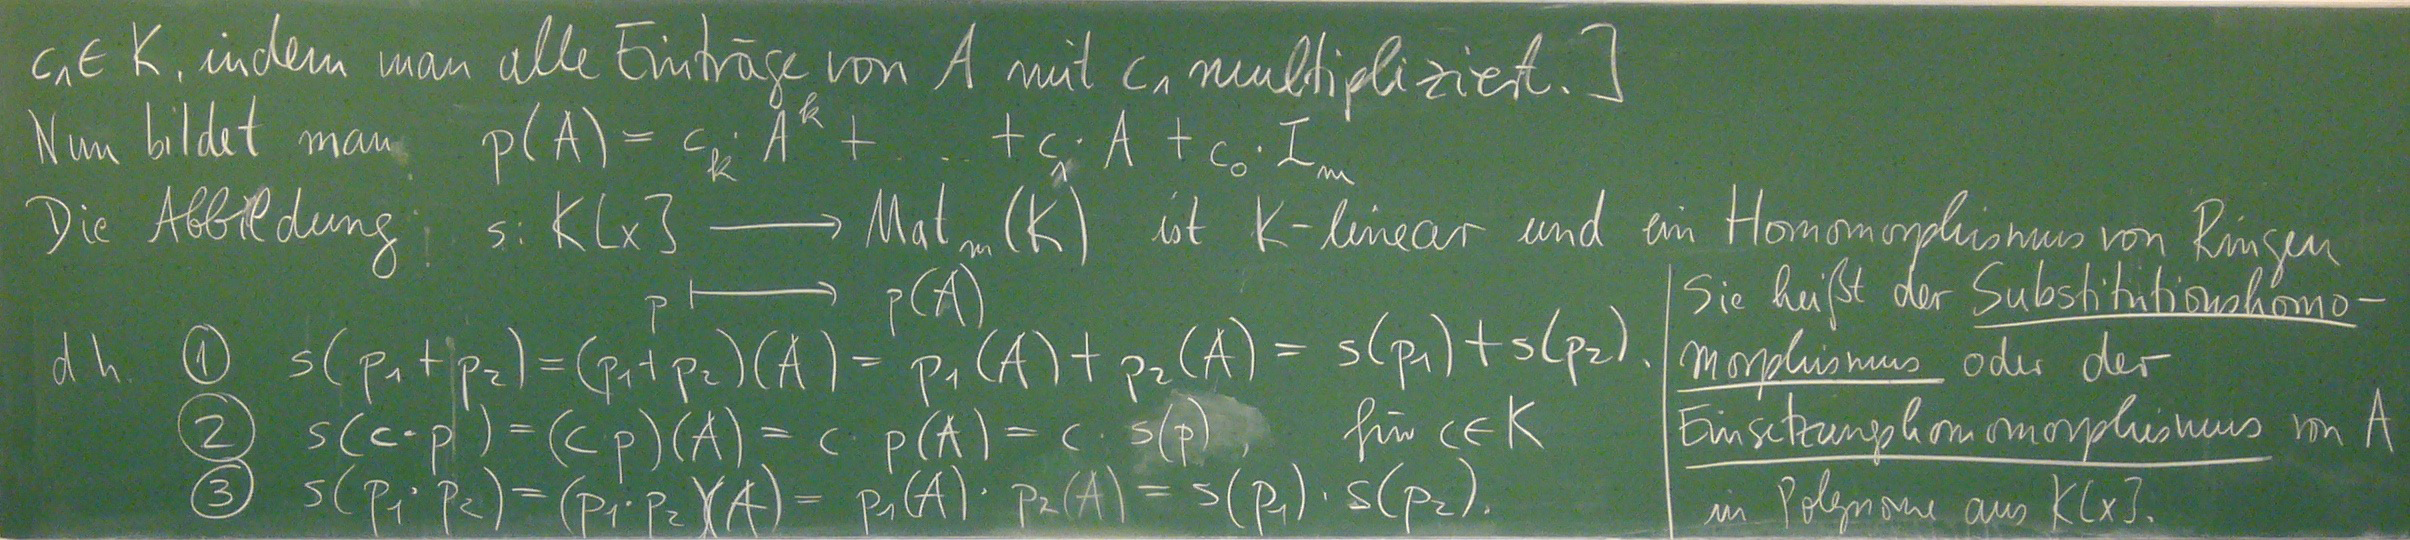 c₁ ∈ K, indem man alle Einträge von A mit c₁ multipliziert.]
Nun bildet man p(A) = c_k · A^k + . . . . + c₁ · A + c₀ · I_m
Die Abbildung: s: K[x] ⟶ Mat_m(K) ist K-linear und ein Homomorphismus von Ringen
p ⟼ p(A)
d h. ① s(p₁ + p₂) = (p₁ + p₂)(A) = p₁(A) + p₂(A) = s(p₁) + s(p₂).
② s(c · p) = (c p)(A) = c p(A) = c · s(p), für c ∈ K
③ s(p₁ · p₂) = (p₁ · p₂)(A) = p₁(A) · p₂(A) = s(p₁) · s(p₂).
Sie heißt der Substitutionshomo-
morphismus oder der
Einsetzungshomomorphismus von A
in Polynome aus K[x].